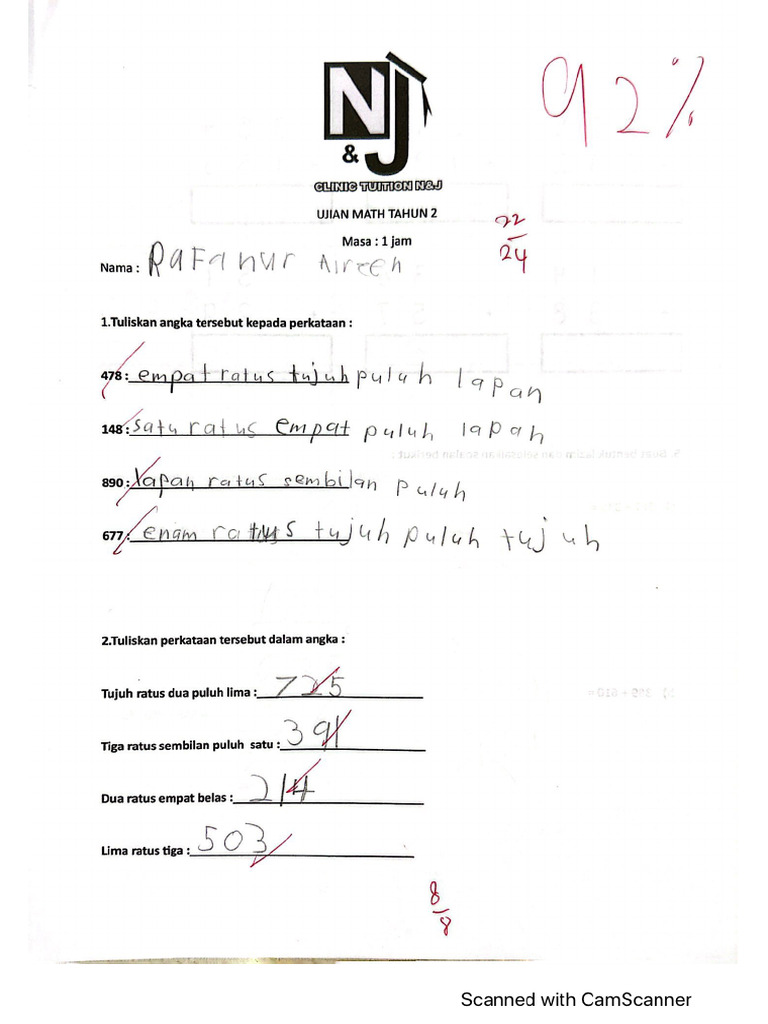 92%
N
&J
CLINIC TUITION N&J
UJIAN MATH TAHUN 2
22
24
Masa : 1 jam
Nama : Rafanur Aireen
1.Tuliskan angka tersebut kepada perkataan :
478 : empat ratus tujuh puluh lapan
148 : satu ratus empat puluh lapan
890 : lapan ratus sembilan puluh
677 : enam ratus tujuh puluh tujuh
2.Tuliskan perkataan tersebut dalam angka :
Tujuh ratus dua puluh lima : 725
Tiga ratus sembilan puluh satu : 391
Dua ratus empat belas : 214
Lima ratus tiga : 503
8
8
Scanned with CamScanner